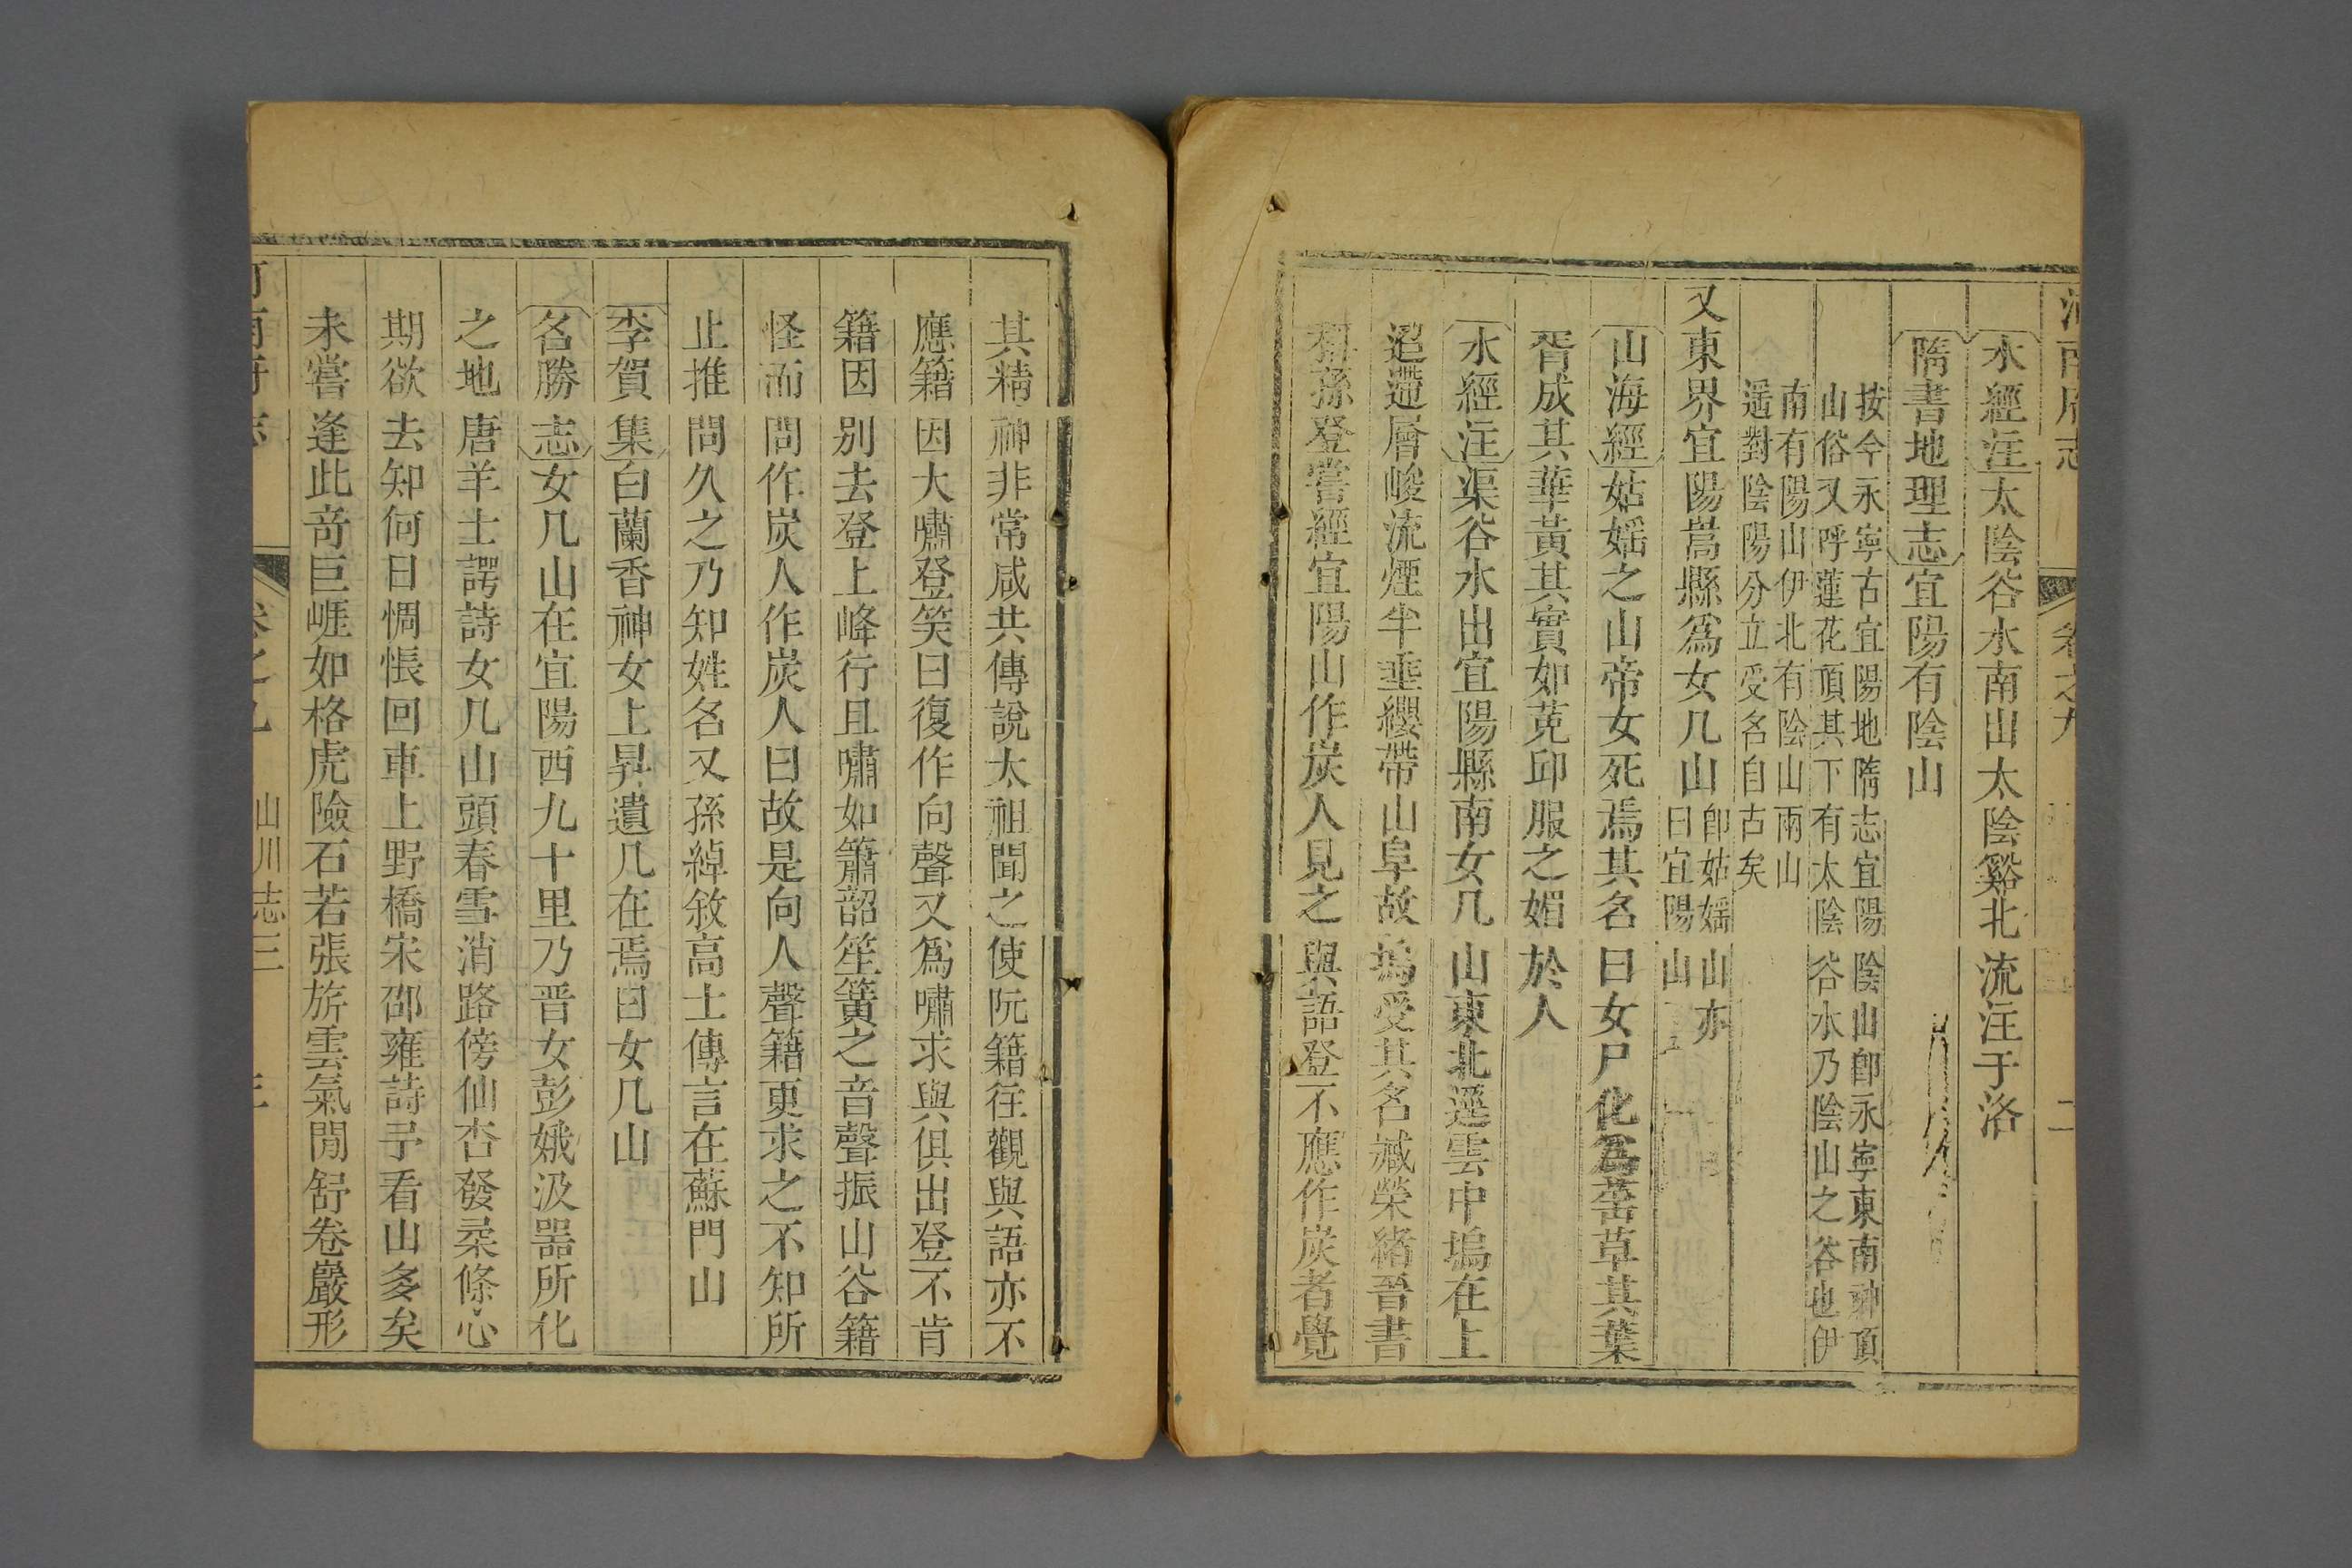 河南府志 卷之九 二
水經注太陰谷水南山太陰谿北流注于洛
隋書地理志宜陽有陰山
按今永寧古宜陽地隋志宜陽陰山卽永寧東南神頂
山俗又呼蓮花頂其下有太陰谷水乃陰山之谷也伊
南有陽山伊北有陰山兩山
遥對陰陽分立受名自古矣
又東界宜陽嵩縣爲女几山
卽姑媱山亦
曰宜陽山
山海經姑媱之山帝女死焉其名曰女尸化爲䔄草其葉
胥成其華黃其實如莵邱服之媚於人
水經注渠谷水出宜陽縣南女几山東北逕雲中塢在上
迢遰層峻流煙半垂纓帶山阜故塢受其名臧榮緖晉書
稱孫登嘗經宜陽山作炭人見之與語登不應作炭者覺
其精神非常咸共傳說太祖聞之使阮籍往觀與語亦不
應籍因大嘯登笑曰復作向聲又爲嘯求與俱出登不肯
籍因别去登上峰行且嘯如簫韶笙簧之音聲振山谷籍
怪而問作炭人作炭人曰故是向人聲籍更求之不知所
止推問久之乃知姓名又孫綽敘高士傳言在蘇門山
李賀集白蘭香神女上昇遺几在焉曰女几山
名勝志女几山在宜陽西九十里乃晋女彭娥汲器所化
之地唐羊士諤詩女几山頭春雪消路傍仙杏發柔條心
期欲去知何日惆悵回車上野橋宋邵雍詩予看山多矣
未嘗逢此竒巨崕如格虎險石若張旂雲氣閒舒卷巖形
河南府志 卷之九 山川志三 三